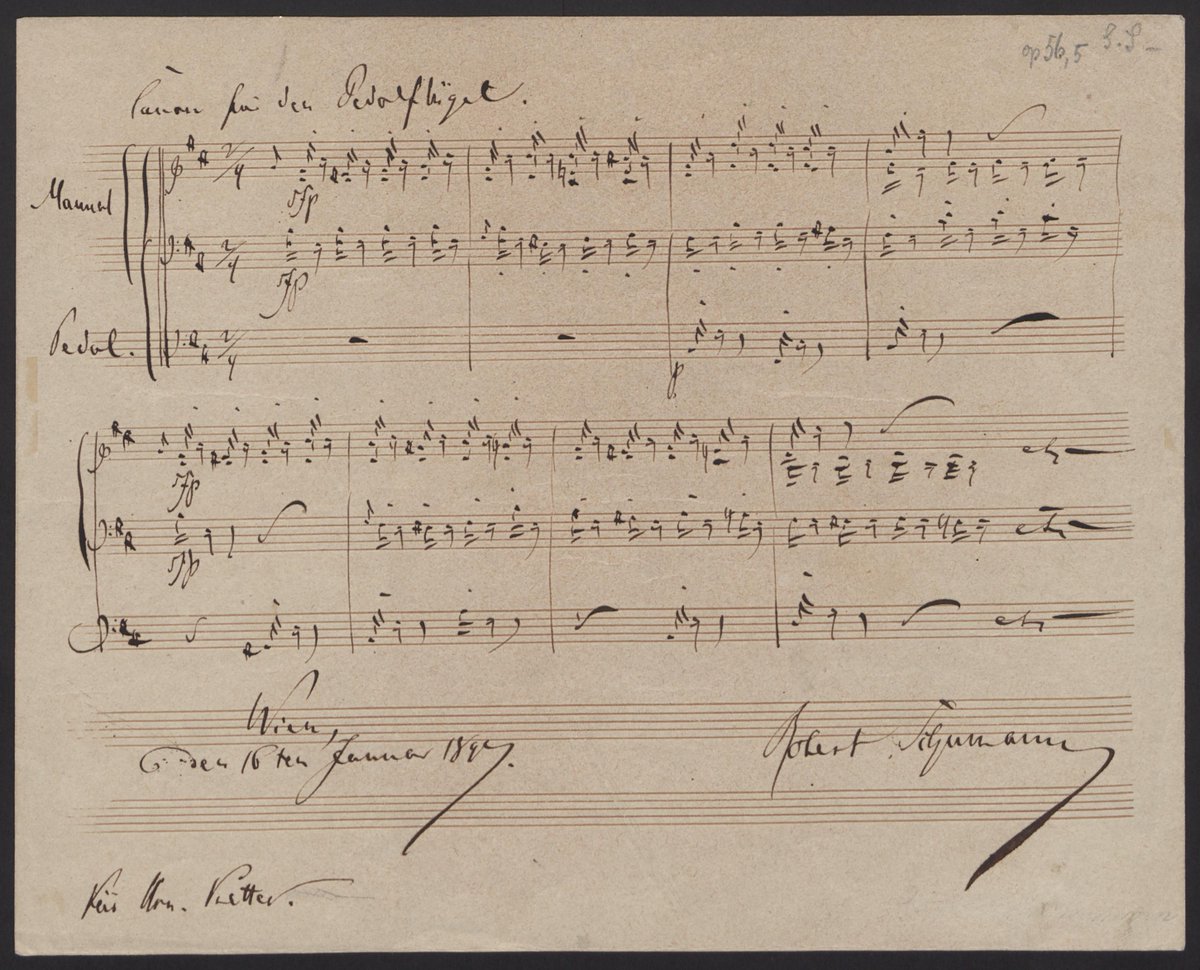 op 56, 5
Canon für den Pedalflügel.
Manual
2/4
sfp
2/4
sfp
Pedal.
2/4
p
sfp
etc
sfp
etc
etc
Wien,
den 16ten Januar 1847.
Robert Schumann
Für Hrn.